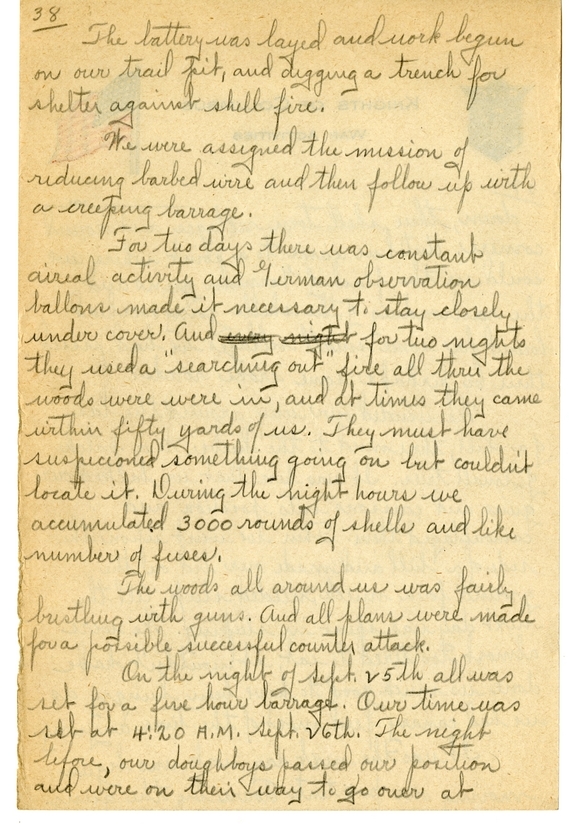 38
The battery was layed and work begun
on our trail pit, and digging a trench for
shelter against shell fire.
We were assigned the mission of
riducing barbed wire and then follow up with
a creeping barrage.
For two days there was constant
aireal activity and German observation
ballons made it necessary to stay closely
under cover. And every night for two nights
they used a "searching out" fire all thru the
woods were were in, and at times they came
within fifty yards of us. They must have
suspicioned something going on but couldn't
locate it. During the night hours we
accumulated 3000 rounds of shells and like
number of fuses.
The woods all around us was fairly
brustling with guns. And all plans were made
for a possible successful counter attack.
On the night of Sept. 25th all was
set for a five hour barrage. Our time was
set at 4:20 A.M. Sept. 26th. The night
before, our doughboys passed our position
and were on their way to go over at